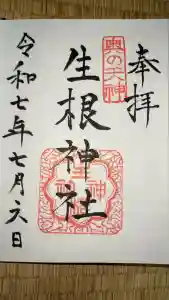 奉拝
奥の天神
生根神社
令和七年七月六日